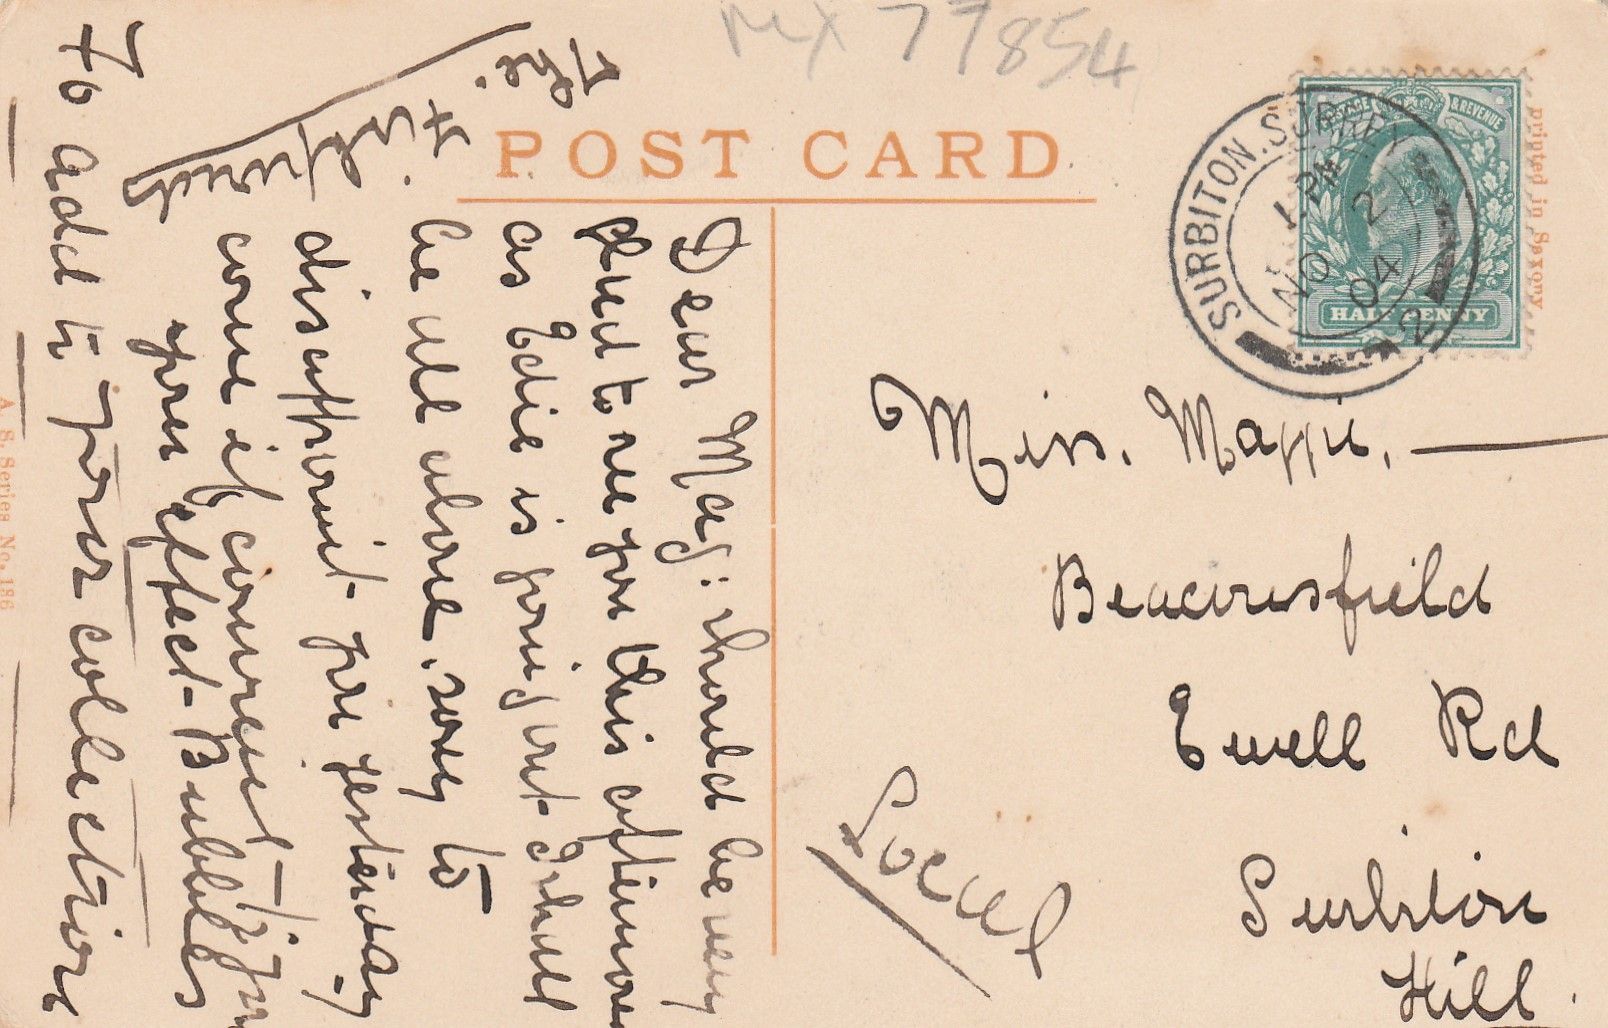 MX 77854
POST CARD
Printed in Saxony
A. S. Series No. 186
SURBITON. SURREY
1 PM
NO 2
04
2
POSTAGE & REVENUE
HALF PENNY
Dear Mag: should be very
glad to see you this afternoon
as Edie is going out I shall
be all alone. sorry to
disappoint you yesterday
come if convenient
your affect- Bubbles
To add to your collection
Miss. Maggie.
Beaconsfield
Ewell Rd
Surbiton
Hill.
Local